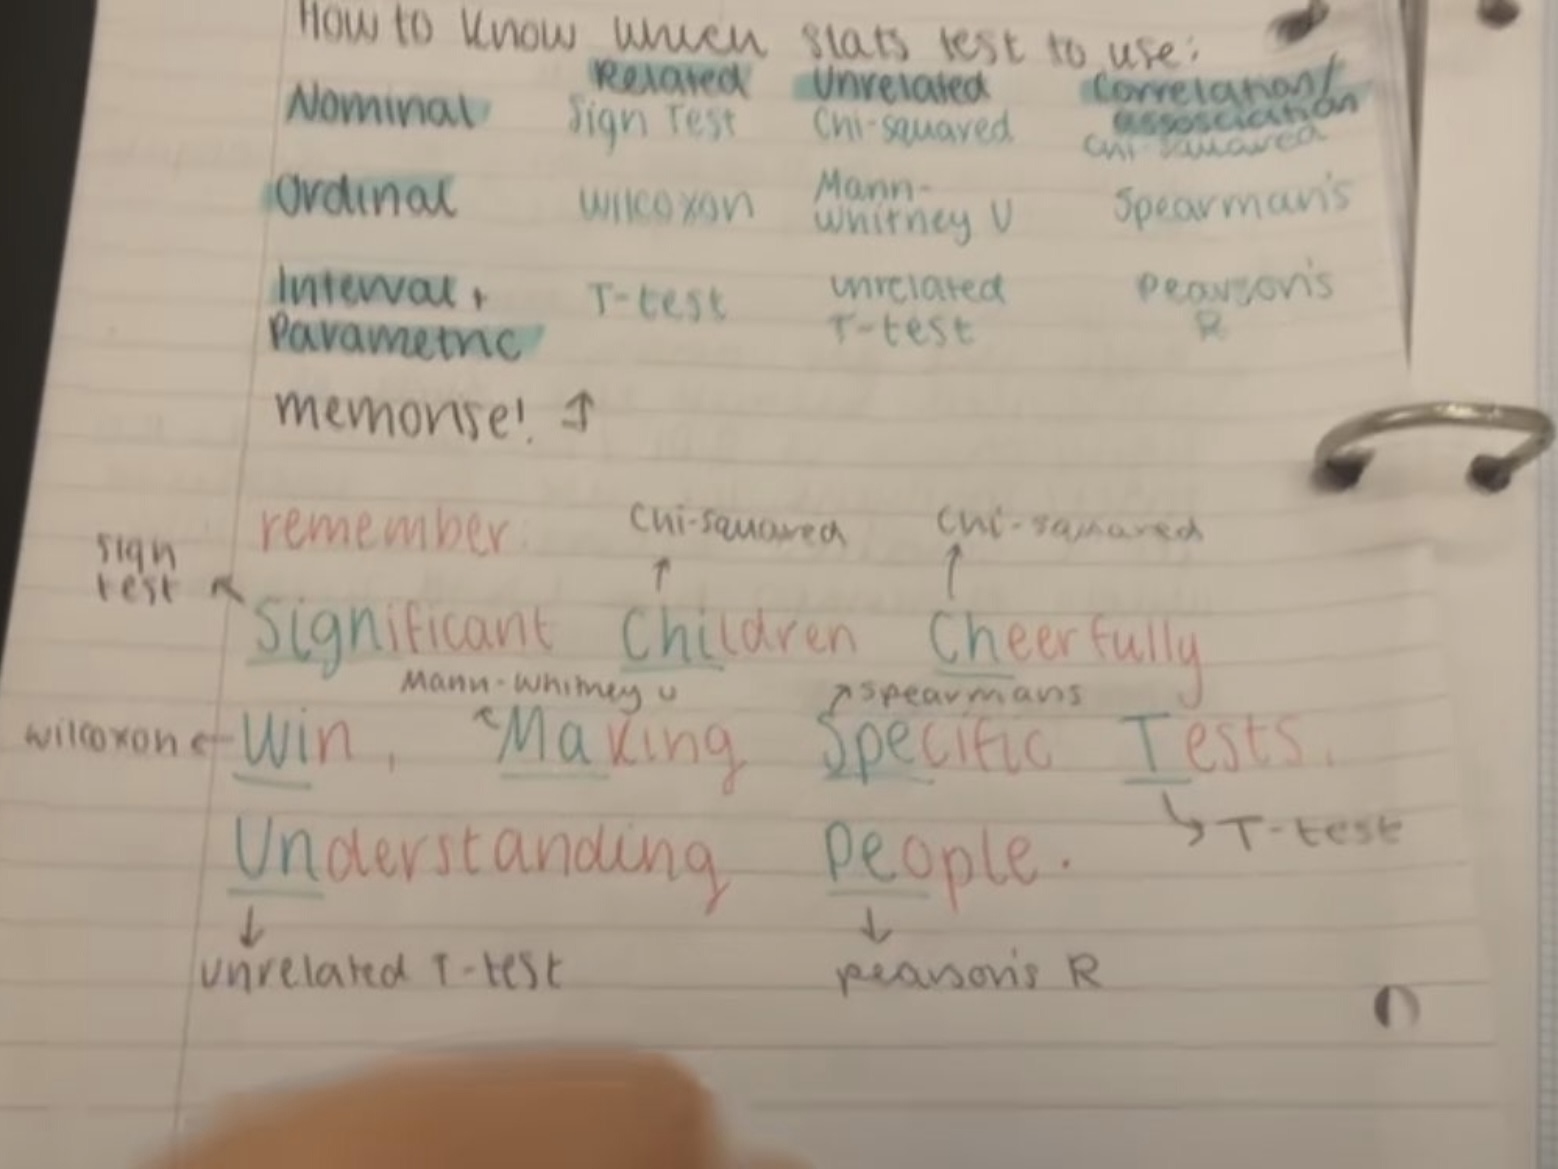 How to know which stats test to use:
Related Unrelated Correlation/
assosciation
Nominal Sign Test Chi-squared Chi-squared
Ordinal Wilcoxon Mann-
Whitney U Spearman's
Interval + T-test unrelated Pearson's
Parametric T-test R
memorise! ↑
remember: Chi-squared Chi-squared
sign
test
Significant Children Cheerfully
Mann-Whitney U spearmans
wilcoxon Win, Making Specific Tests.
T-test
Understanding People.
unrelated T-test pearson's R